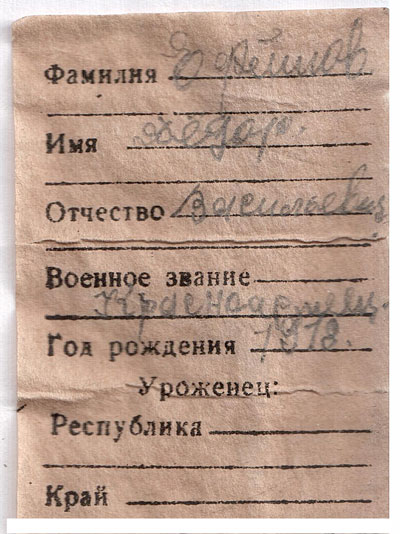 Фамилия Ефимов
Имя Федор.
Отчество Васильевич
Военное звание
Красноармеец.
Год рождения 1912.
Уроженец:
Республика
Край